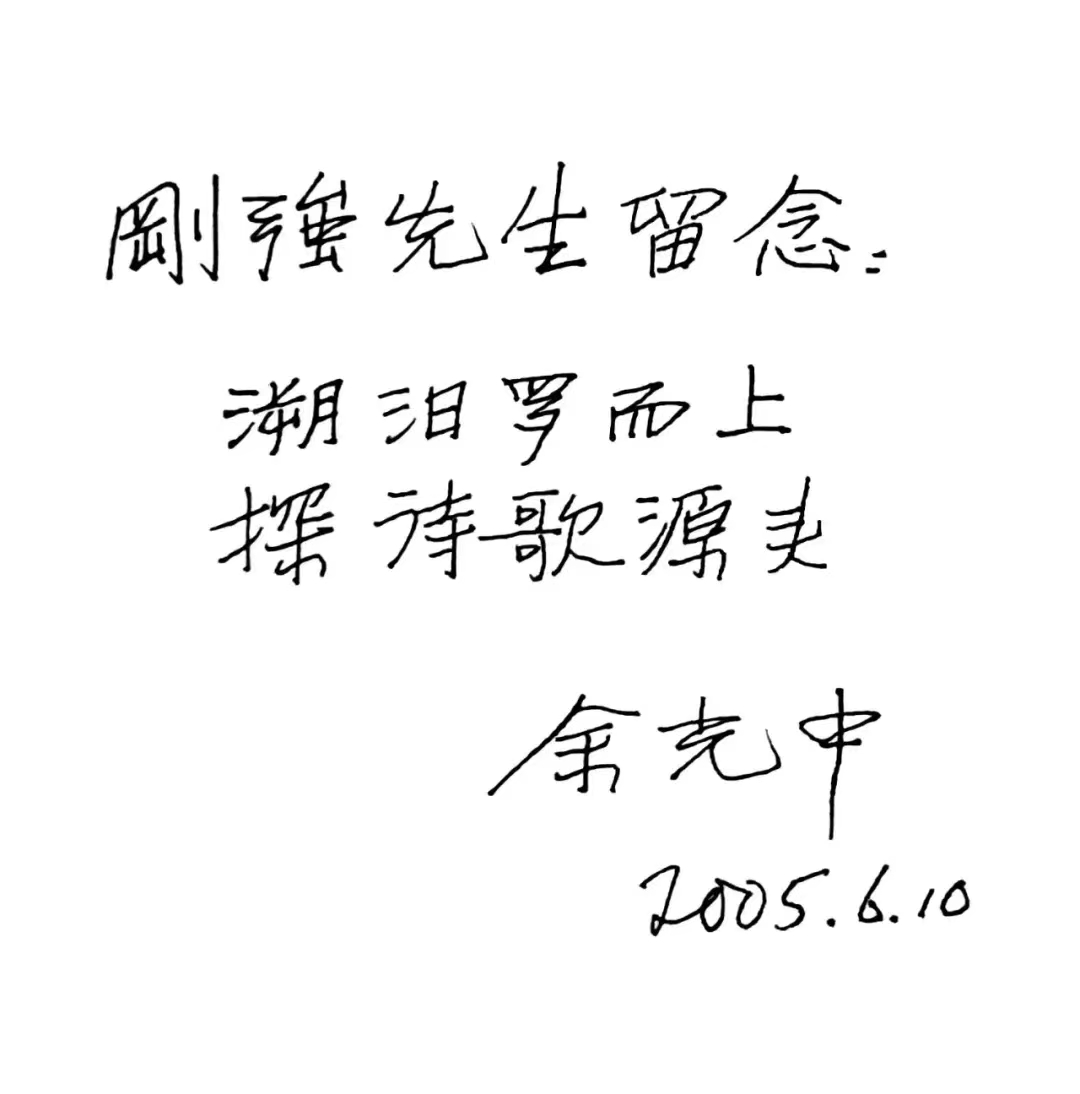 剛強先生留念：
溯汨罗而上
探诗歌源头
余光中
2005.6.10